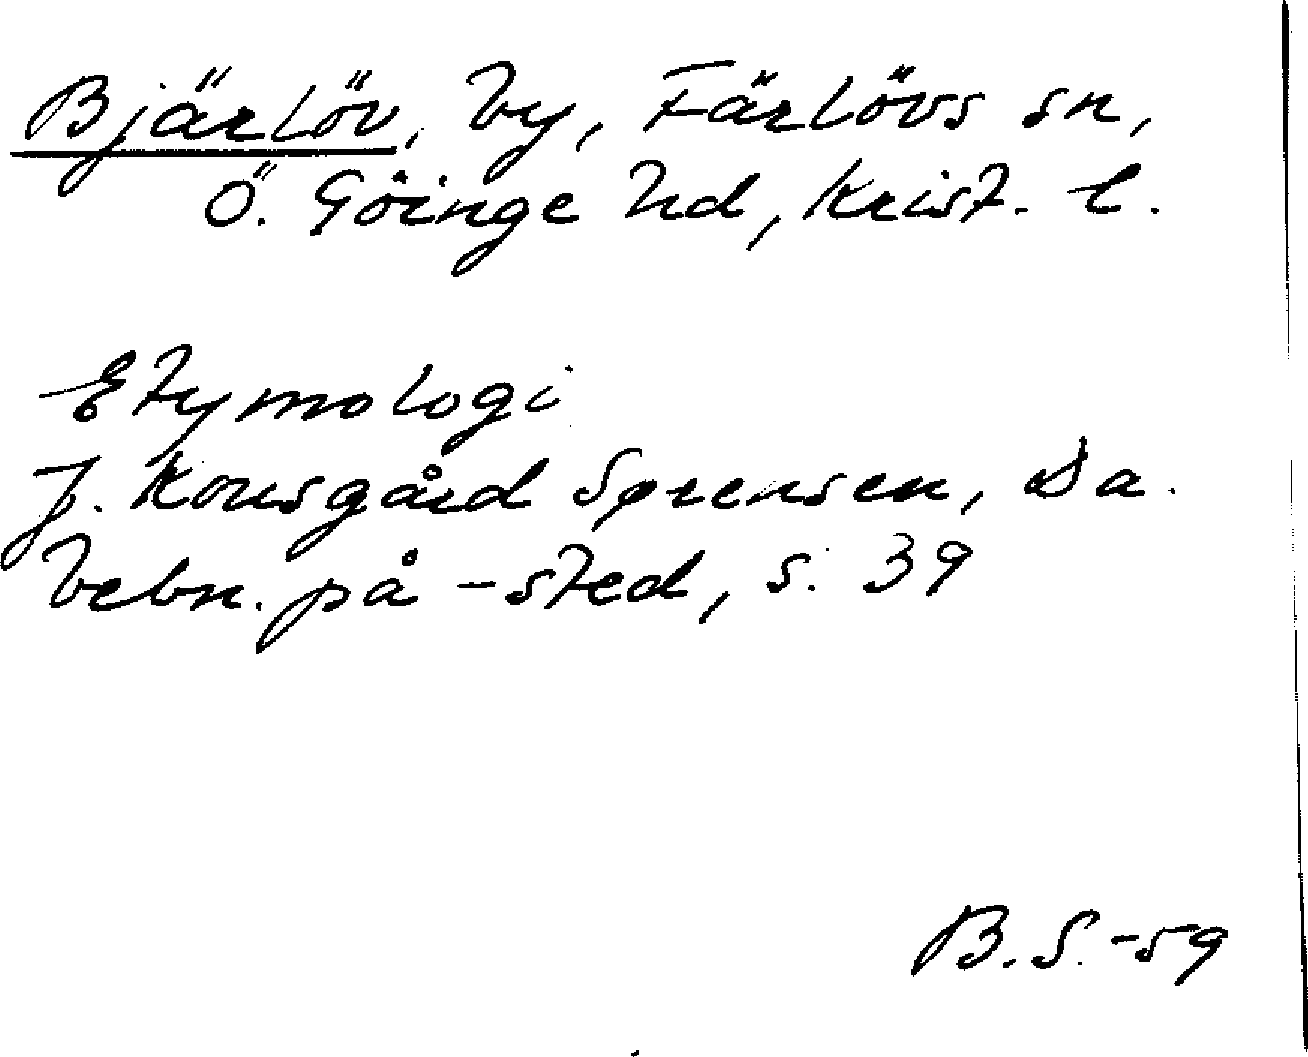 Bjärlöv, by, Färlövs sn,
Ö. Göinge hd, Krist. l.
Etymologi
J. Kousgård Sørensen, Da.
bebn. på -sted, s. 39
B.S. -59